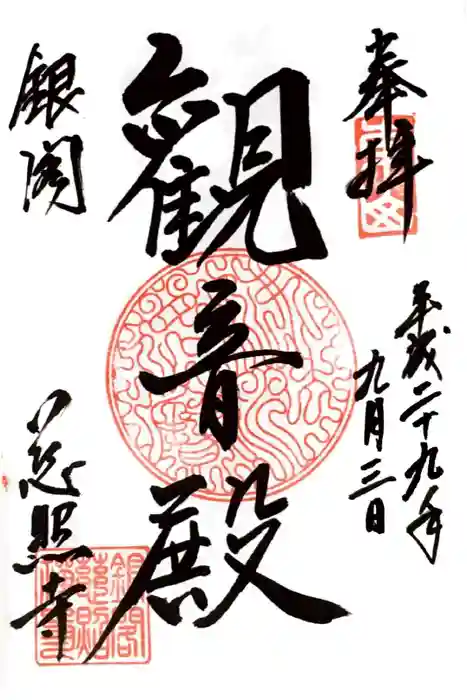 奉拝
平成二十九年
九月三日
觀音殿
銀閣
慈照寺
銀閣
慈照